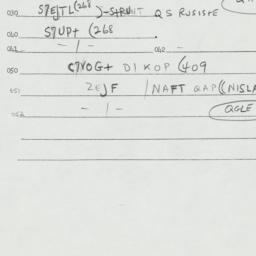 030 S7EJTL(268)-STRUNT QS RUSISTE
040 S7UP+ (268
042 -1- 040 -
050 C7VOG+ DIKOP (409
051 2EJF /NAFT QAP((NISLA
052 -1- QGLE